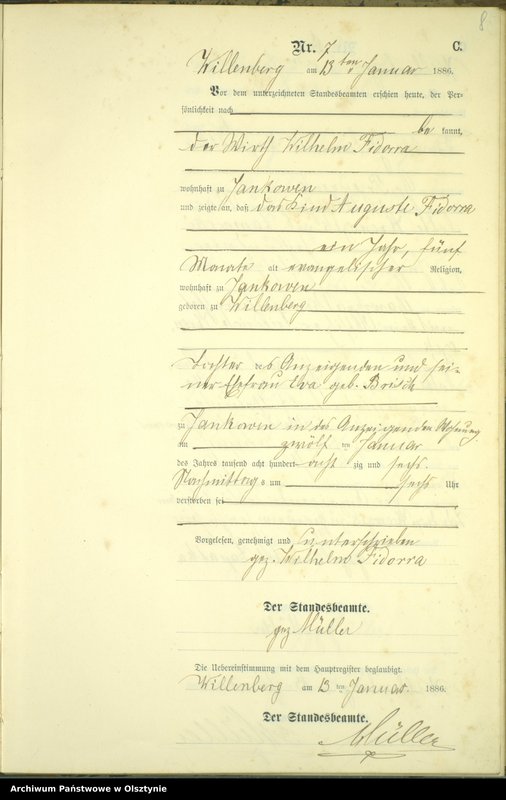 8
Nr. 7 C.
Willenberg am 13ten Januar 1886.
Vor dem unterzeichneten Standesbeamten erschien heute, der Per-
sönlichkeit nach
be kannt,
der Wirth Wilhelm Fidorra
wohnhaft zu Jankowen
und zeigte an, daß das Kind Auguste Fidorra
ein Jahr, fünf
Monate alt evangelischer Religion,
wohnhaft zu Jankowen
geboren zu Willenberg
Tochter des Anzeigenden und sei-
ner Ehefrau Eva geb. Brisch
zu Jankowen in des Anzeigenden Wohnung
am zwölf ten Januar
des Jahres tausend acht hundert acht zig und sechs.
Nachmittag s um sechs Uhr
verstorben sei
Vorgelesen, genehmigt und unterschrieben
gez. Wilhelm Fidorra
Der Standesbeamte.
gez Müller
Die Uebereinstimmung mit dem Hauptregister beglaubigt.
Willenberg am 13 ten Januar. 1886.
Der Standesbeamte.
Müller
Archiwum Państwowe w Olsztynie